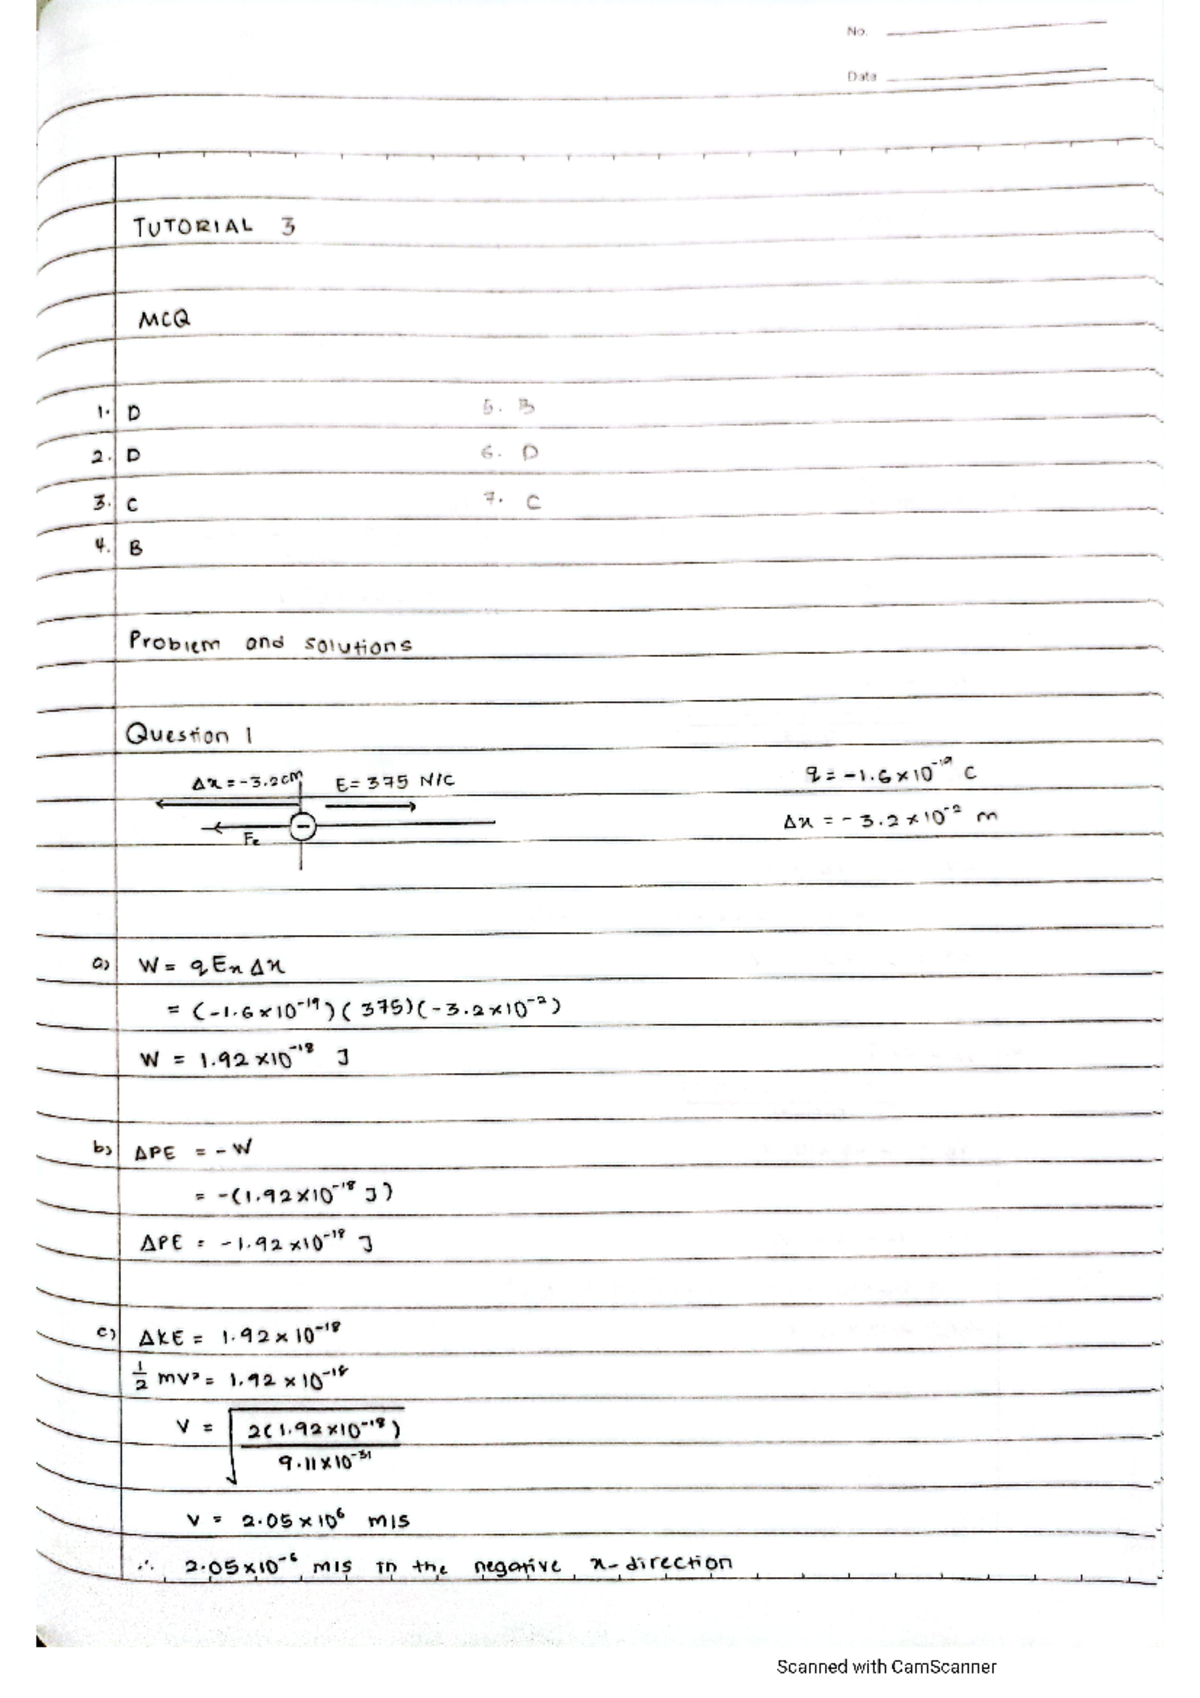 No.
Date
TUTORIAL 3
MCQ
1. D
2. D
3. C
4. B
5. B
6. D
7. C
Problem and solutions
Question 1
Δx = -3.2cm
E = 375 N/C
Fe
q = -1.6 × 10⁻¹⁹ C
Δx = -3.2 × 10⁻² m
a) W = qExΔx
= (-1.6 × 10⁻¹⁹)(375)(-3.2 × 10⁻²)
W = 1.92 × 10⁻¹⁸ J
b) ΔPE = -W
= -(1.92 × 10⁻¹⁸ J)
ΔPE = -1.92 × 10⁻¹⁸ J
c) ΔKE = 1.92 × 10⁻¹⁸
1/2 mv² = 1.92 × 10⁻¹⁸
V = √(2(1.92 × 10⁻¹⁸) / 9.11 × 10⁻³¹)
V = 2.05 × 10⁶ m/s
∴ 2.05 × 10⁻⁶ m/s in the negative x-direction
Scanned with CamScanner